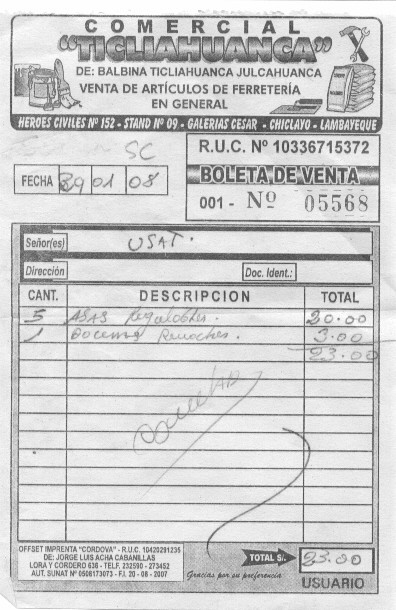 COMERCIAL
"TICLIAHUANCA"
DE: BALBINA TICLIAHUANCA JULCAHUANCA
VENTA DE ARTÍCULOS DE FERRETERÍA
EN GENERAL
HEROES CIVILES Nº 152 - STAND Nº 09 - GALERIAS CESAR - CHICLAYO - LAMBAYEQUE
SC
R.U.C. Nº 10336715372
BOLETA DE VENTA
001 - Nº 05568
FECHA 29 01 08
Señor(es) USAT.
Dirección Doc. Ident.:
CANT. DESCRIPCION TOTAL
5 ASAS 20.00
1 Docena Remaches. 3.00
23.00
OFFSET IMPRENTA "CORDOVA" - R.U.C. 10420291235
DE: JORGE LUIS ACHA CABANILLAS
LORA Y CORDERO 636 - TELF. 232590 - 273452
AUT. SUNAT Nº 0506173073 - F.I. 20 - 08 - 2007
Gracias por su preferencia
TOTAL S/. 23.00
USUARIO